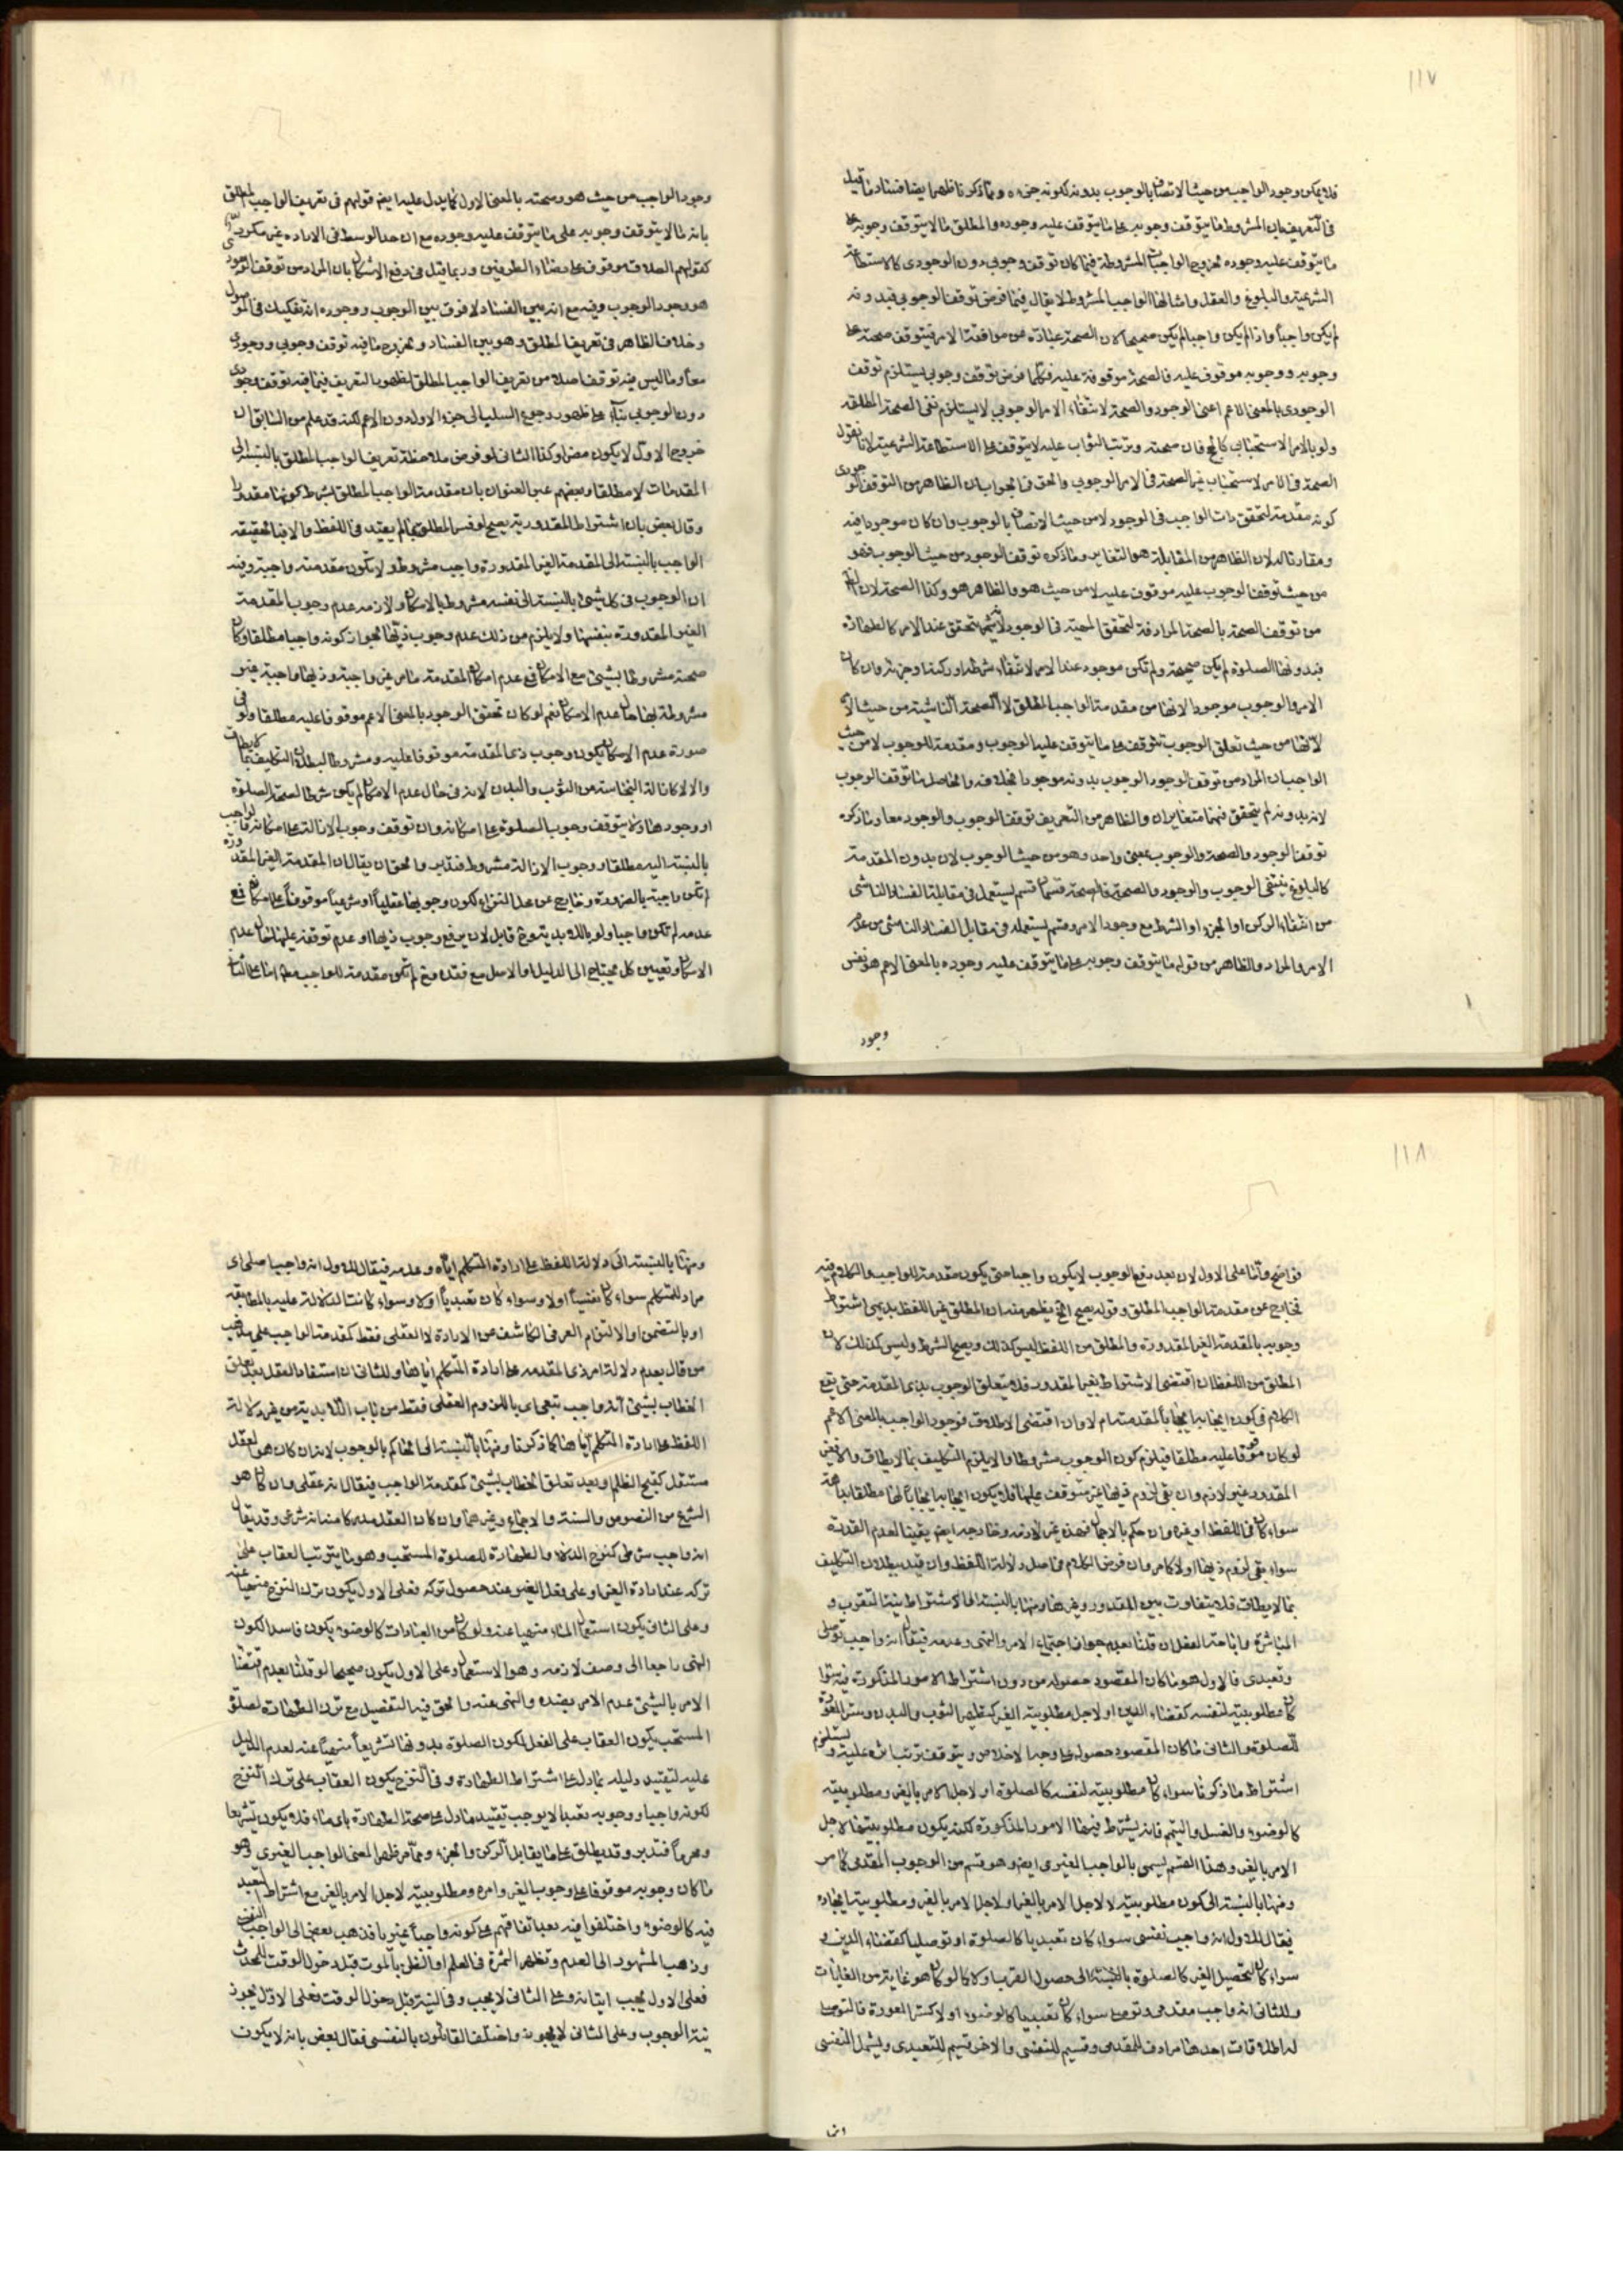 ١١٧
فلا يمكن وجود الواجب من حيث الاتصاف بالوجوب بدونه لكونه جزءه وبما ذكرنا ظهر ايضا فساد ما قيل
في التعريف بان المشروط ما يتوقف وجوبه على ما يتوقف عليه وجوده والمطلق ما لا يتوقف وجوبه على
ما يتوقف عليه وجوده بخروج الواجبات المشروطة فيما كان توقف وجوبي دون الوجودي كالاستطاعة
الشرعية والبلوغ والعقل وامثالها الواجب المشروط لا يقال فيما فرض توقف الوجوبي فبدونه
لم يكن واجباً واذا لم يكن واجبا لم يكن صحيحا لان الصحة عبارة عن موافقة الامر فيتوقف صحته على
وجوبه ووجوبه موقوف عليه فالصحة موقوفة عليه فكلما فرض توقف وجوبي يستلزم توقف
الوجودي بالمعنى الاعم اعنى الوجود والصحة لانتفاء الامر الوجوبي لا يستلزم نفى الصحة المطلقة
ولو بالامر الاستحبابى كالحج فان صحته وترتب الثواب عليه لا يتوقف على الاستطاعة الشرعية لانا نقول
الصحة فى الامر الاستحباب غير الصحة فى الامر الوجوبي والحق فى الجواب ان الظاهر من التوقف الوجودى
كونه مقدمة لتحقق ذات الواجب فى الوجود لا من حيث الاتصاف بالوجوب وان كان موجودا فيه
ومقارنا له لان الظاهر من المقابلة هو التغاير وما ذكره توقف الوجود من حيث الوجوب فهو
من حيث توقف الوجوب عليه موقوف عليه لا من حيث هو والظاهر هو وكذا الصحة لان
من توقف الصحة بالصحة المرادفة لتحقق المهية فى الوجود تحقق عند الامر كالطهارة
فبدونها الصلوة لم يكن صحيحة ولم تكن موجود عند الامر لانتفاء شرطه او ركنه او جزئه وان كان
الامر والوجوب موجودا لانها من مقدمة الواجب المطلق لا الصحة الناشية من حيث الامر
لانها من حيث تعلق الوجوب تتوقف على ما يتوقف عليه الوجوب ومقدمة للوجوب لا من حيث
الواجب ان المراد من توقف الوجود الوجوب بدونه موجودا بخلافه والحاصل ما توقف الوجوب
لانه بدونه لم يتحقق فهما متغايران والظاهر من التعريف توقف الوجوب والوجود معا وما ذكره
توقف الوجود والصحة والوجوب بمعنى واحد وهو من حيث الوجوب لان بدون المقدمة
كالبلوغ ينتفى الوجوب والوجود والصحة فالصحة قسمان قسم يستعمل فى مقابلة الفساد الناشى
من انتفاء الركن او الجزء او الشرط مع وجود الامر وقسم يستعمله فى مقابل الفساد الناشى من عدم
الامر والمراد والظاهر من قوله ما يتوقف وجوبه على ما يتوقف عليه وجوده بالمعنى الاعم هو نفس
وجود
وجود الواجب من حيث هو وصحته بالمعنى الاول كما يدل عليه ايضا قولهم فى تعريف الواجب المطلق
بانه ما لا يتوقف وجوبه على ما يتوقف عليه وجوده مع ان حد الوسط فى الاراده غير مكرر
كقولهم الصلاة موقوف على رضاء الطرفين وربما قيل فى دفع الاشكال بان المراد من توقف الوجود
هو وجود الوجوب وفيه مع انه بين الفساد لا فرق بين الوجوب ووجوده انه تفكيك فى الموصول
وخلاف الظاهر فى تعريف المطلق وهو بين الفساد وبخروج ما فيه توقف وجوبي ووجودى
معا وما ليس فيه توقف اصلا من تعريف الواجب المطلق لظهور التعريف فيما فيه توقف وجودى
دون الوجوبى بناء على ظهور رجوع السلب الى جزء الاول دون الاعم لكنه قد علم من السابق ان
خروج الاول لا يكون مضرا وكذا الثانى لو فرض ملاحظة تعريف الواجب المطلق بالنسبة الى
المقدمات لا مطلقا وبعضهم عبر العنوان بان مقدمة الواجب المطلق بشرط كونها مقدورا
وقال بعض بان اشتراط المقدورية يصح لو فسر المطلق بما لم يقيد فى اللفظ والا فبالحقيقه
الواجب بالنسبة الى المقدمة الغير المقدورة واجب مشروط ولا يكون مقدمته واجبة وفيه
ان الوجوب فى كل شئ بالنسبة الى نفسه مشروط بالامكان ولازمه عدم وجوب المقدمة
الغير المقدورة بنفسها ولا يلزم من ذلك عدم وجوب ذيها لجواز كونه واجبا مطلقا وكان
صحته مشروطا بشئ مع الامكان فمع عدم امكان المقدمة مامر غير واجبة وذيها واجبة غير
مشروطة بها حال عدم الامكان نعم لو كان تحقق الوجود بالمعنى الاعم موقوفا عليه مطلقا ولو فى
صورة عدم الامكان يكون وجوب ذى المقدمة موقوفا عليه ومشروطا لبطلان التكليف بما لا يطاق
والا لا كازالة النجاسة من الثوب والبدن لانه فى حال عدم الامكان لم يكن شرطا لصحة الصلوة
او وجودها ولا يتوقف وجوب الصلوة على امكانه وان توقف وجوب الازالة على امكانه فالواجب
بالنسبة اليه مطلقا ووجوب الازالة مشروط فتدبر والحق ان يقال ان المقدمة الغير المقدورة
لم تكن واجبة بالضرورة وخارج عن محل النزاع لكون وجوبها عقلياً او شرعياً موقوفاً على امكانها فمع
عدمه لم تكن واجبا ولو باللابدية نعم قابل لان يرفع وجوب ذيها او عدم توقفه عليها حال عدم
الامكان وتعيين كل محتاج الى الدليل او الاصل مع فقده ومع لم تكن مقدمة للواجب مطلقا اما على الثانى
١١٨
فواضح واما على الاول لان بعد رفع الوجوب لا يكون واجبا حتى يكون مقدمة للواجب والكلام فيه
فخارج عن مقدمة الواجب المطلق وقوله يصح الخ يظهر منه ان المطلق غير اللفظ بديهى اشتراط
وجوبه بالمقدمة الغير المقدورة والمطلق من اللفظ ليس كذلك ويصح الشرط وليس كذلك لان
المطلق من اللفظ ان اقتضى الاشتراط بغير المقدور فلا يتعلق الوجوب بذى المقدمة حتى يقع
الكلام فى كون ايجابه ايجاباً لمقدمته ام لا وان اقتضى الاطلاق فوجود الواجب بالمعنى الاعم
لو كان موقوفا عليه مطلقا فيلزم كون الوجوب مشروطا والا يلزم التكليف بما لا يطاق والا فنفس
المقدور غير لازم وان بقى لزوم ذيها غير متوقف عليها فلا يكون ايجابه ايجاباً لها مطلقا بداهة
سواء كان فى اللفظ او غيره وان حكم بالاجمال فهذه غير لازمه وخارجه ايضا يقينا لعدم القدرة
سواء بقى لزوم ذيها او لا كما مر وان فرض الكلام فى اصل دلالة اللفظ وان قيد ببطلان التكليف
بما لا يطاق فلا يتفاوت بين المقدور وغيرها ومنها بالنسبة الى الاشتراط بنية التقرب و
المباشرة واباحة الفعل ان قلنا بعدم جواز اجتماع الامر والنهى وعدمه فيقال انه واجب توصلى
وتعبدى فالاول هو ما كان المقصود حصوله من دون اشتراط الامور المذكورة فيه سواء
كان مطلوبيته لنفسه كقضاء الدين او لاجل مطلوبية الغير كتطهير الثوب والبدن وستر العورة
للصلوة والثانى ما كان المقصود حصول على وجه الاخلاص ويتوقف ترتب اثره عليه ويستلزم
اشتراط ما ذكرنا سواء كان مطلوبيته لنفسه كالصلوة او لاجل الامر بالغير ومطلوبيته
كالوضوء والغسل والتيمم فانه يشترط فيها الامور المذكورة لكنه يكون مطلوبيتها لاجل
الامر بالغير وهذا القسم يسمى بالواجب الغيرى ايضا وهو قسم من الوجوب المقدمى كما مر
ومنها بالنسبة الى كون مطلوبيته لا لاجل الامر بالغير او لاجل الامر بالغير ومطلوبية ايجاده
فيقال للاول انه واجب نفسى سواء كان تعبديا كالصلوة او توصليا كقضاء الدين و
سواء كان لتحصيل الغير كالصلوة بالنسبة الى حصول القرب او لا كما لو كان هو غاية من الغايات
وللثانى انه واجب مقدمى وتوصلى سواء كان تعبديا كالوضوء او لا كستر العورة فالتوصلى
له اطلاقات احدها مرادف للمقدمى وقسيم للنفسى والاخر قسيم للتعبدى ويشمل النفسى
ومنها بالنسبة الى دلالة اللفظ على ارادة المتكلم اياه وعدمه فيقال للاول انه واجب اصلى اى
مراد للمتكلم سواء كان نفسيا اولا وسواء كان تعبدياً اولا وسواء كانت الدلالة عليه بالمطابقه
او بالتضمن او الالتزام العرفى الكاشف عن الارادة لا العقلى فقط كمقدمة الواجب على مذهب
من قال بعدم دلالة امر ذى المقدمه على ارادة المتكلم اياها وللثانى ان استفاد العقل بعد تعلق
الخطاب بشئ انه واجب تبعى اى باللزوم العقلى فقط من باب اللابدية من غير دلالة
اللفظ على ارادة المتكلم اياها كما ذكرنا ومنها بالنسبة الى الحاكم بالوجوب لانه ان كان هو العقل
مستقل كقبح الظلم او بعد تعلق الخطاب بشئ كمقدمة الواجب فيقال انه عقلى وان كان هو
الشرع من النصوص والسنة والاجماع وغيرها وان كان العقل مدركا منا انه شرعى وقد يقال
انه واجب شرطى كنزح الدلاء والطهارة للصلوة المستحب وهو ما يترتب العقاب على
تركه عند ارادة الغير او على فعل الغير عند حصول تركه فعلى الاول يكون ترك النزح منهياً عنه
وعلى الثانى يكون استعمال الماء منهيا عنه ولو كان من العبادات كالوضوء يكون فاسدا لكون
النهى راجعا الى وصف لازمه وهو الاستعمال وعلى الاول يكون صحيحا لو قلنا بعدم اقتضاء
الامر بالشئ عدم الامر بضده والنهى عنه والحق فيه التفصيل مع ترك الطهارة لصلوة
المستحب يكون العقاب على الفعل لكون الصلوة بدونها تشريعاً منهياً عنه لعدم الدليل
عليه لتقييد دليله بما دل على اشتراط الطهارة وفى النزح يكون العقاب على ترك النزح
لكونه واجبا ووجوبه تعبدا لا يوجب تقييد ما دل على صحة الطهارة باى ماء فلا يكون تشريعا
ومحرماً فتدبر وقد يطلق على ما يقابل الركن والجزء ومما مر ظهر المعنى الواجب الغيرى وهو
ما كان وجوبه موقوفا على وجوب الغير وامره ومطلوبيته لاجل الامر بالغير مع اشتراط التعبد
فيه كالوضوء واختلفوا فيه بعد اتفاقهم على كونه واجباً غيريا فذهب بعض الى الواجب النفسى
وذهب المشهور الى العدم وتظهر الثمرة فى العلم او الظن بالموت قبل دخول الوقت للمحدث
فعلى الاول يجب اتيانه وعلى الثانى لا يجب وفى النية قبل دخول الوقت فعلى الاول يجوز
نية الوجوب وعلى الثانى لا يجوز واختلف القائلون بالنفسى فقال بعض بانه لا يكون